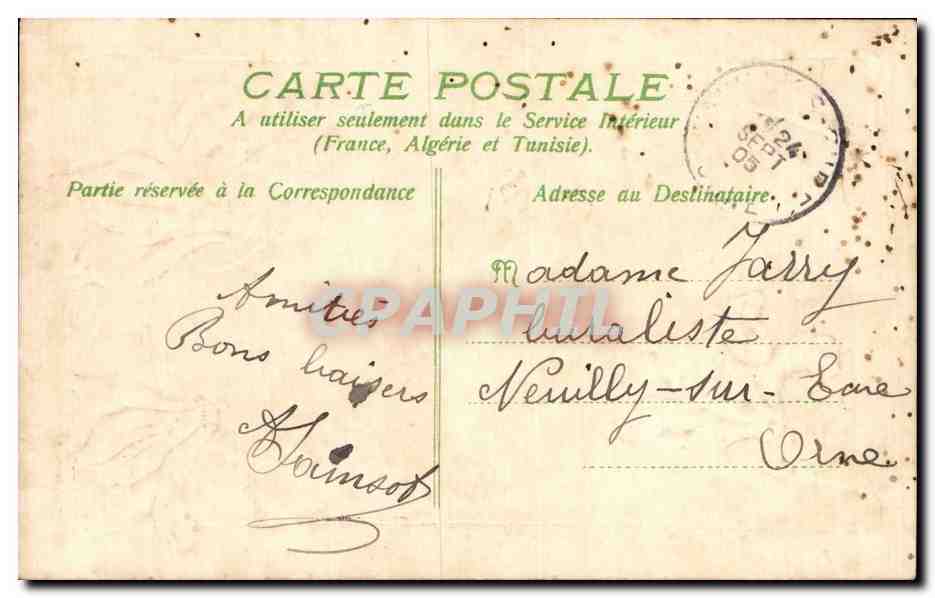 CARTE POSTALE
A utiliser seulement dans le Service Intérieur
(France, Algérie et Tunisie).
24
SEPT
05
Partie réservée à la Correspondance
Adresse au Destinataire
Amitiés
Bons baisers
Madame Jarry
buraliste
Neuilly-sur-Eure
Orne
CPAPHIL